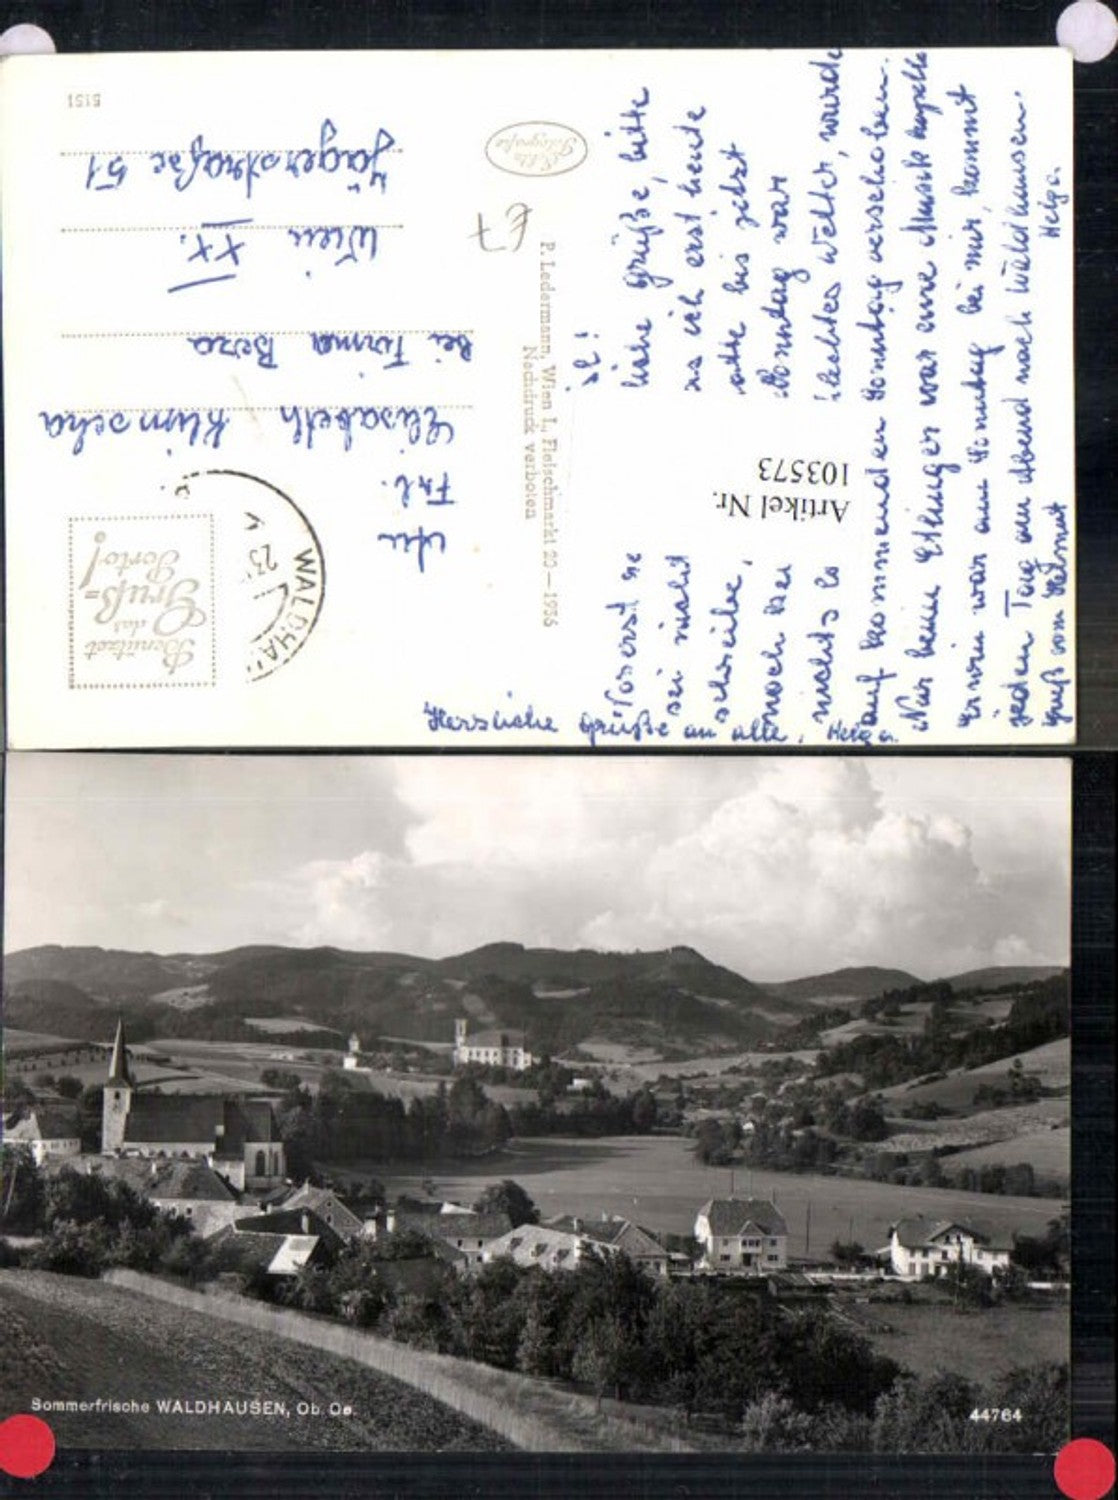 5151
An
Frl.
Elisabeth Klimscha
bei Firma Beza
Wien XX.
Jägerstraße 51
Benützet
das
Gruß-
Porto!
WALDHAU
23
P. Ledermann, Wien I., Fleischmarkt 20 — 1956
Nachdruck verboten
£7
Artikel Nr.
103573
Vorerst liebe Grüße, bitte
sei nicht ich erst heute
schreibe, hatte bis jetzt
noch Sonntag war
nichts schlechtes Wetter, wurde
auf kommenden Sonntag verschoben.
Nur beim Ettinger war eine Musikkapelle
Erwin war am Sonntag bei mir, kommt
jeden Tag am Abend nach Waldhausen.
Gruß von Helmut Helga.
Herzliche Grüße an alle. Helga.
Sommerfrische WALDHAUSEN, Ob. Oe.
44764